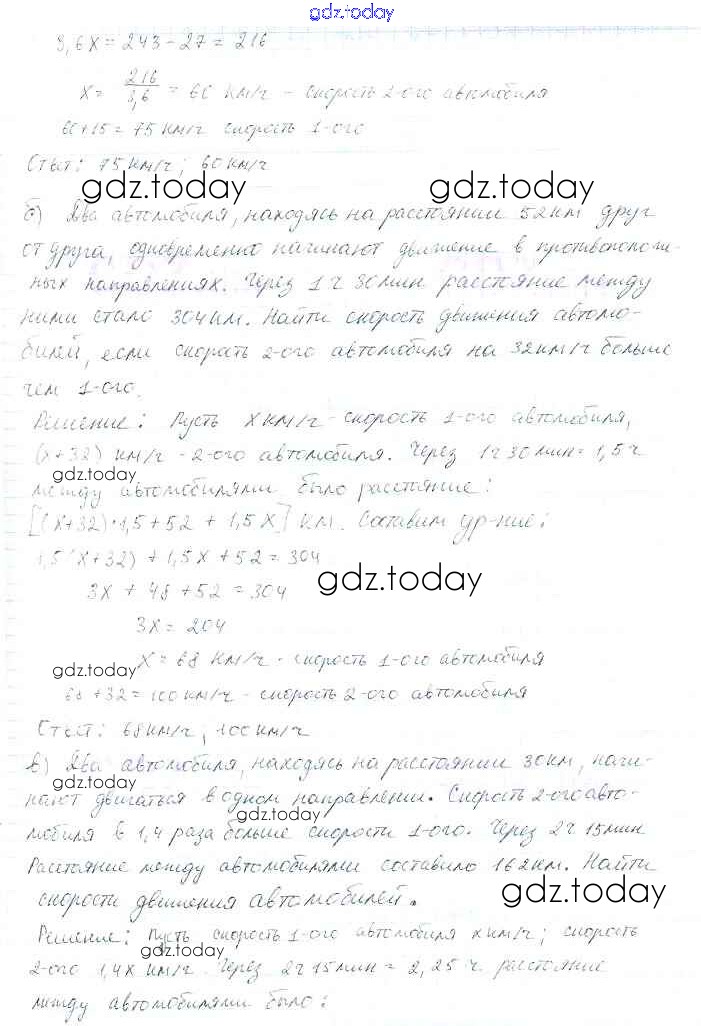 gdz.today
3,6х = 243 - 27 = 216
х = 216/3,6 = 60 км/ч - скорость 2-ого автомобиля
60+15 = 75 км/ч скорость 1-ого
Ответ: 75 км/ч; 60 км/ч
gdz.today gdz.today
б) Два автомобиля, находясь на расстоянии 52 км друг
от друга, одновременно начинают движение в противополож-
ных направлениях. Через 1 ч 30 мин расстояние между
ними стало 304 км. Найти скорость движения автомо-
билей, если скорость 2-ого автомобиля на 32 км/ч больше
чем 1-ого.
Решение: Пусть х км/ч - скорость 1-ого автомобиля,
(х+32) км/ч - 2-ого автомобиля. Через 1ч 30 мин = 1,5 ч
gdz.today
между автомобилями было расстояние:
[(х+32)·1,5+52 + 1,5х] км. Составим ур-ние:
1,5(х+32) + 1,5х + 52 = 304
gdz.today
3х + 48 + 52 = 304
3х = 204
х = 68 км/ч - скорость 1-ого автомобиля
gdz.today
68 + 32 = 100 км/ч - скорость 2-ого автомобиля
Ответ: 68 км/ч; 100 км/ч
в) Два автомобиля, находясь на расстоянии 30 км, начи-
gdz.today
нают двигаться в одном направлении. Скорость 2-ого авто-
gdz.today
мобиля в 1,4 раза больше скорости 1-ого. Через 2ч 15 мин
Расстояние между автомобилями составило 162 км. Найти
скорости движения автомобилей.
gdz.today
Решение: Пусть скорость 1-ого автомобиля х км/ч; скорость
gdz.today
2-ого 1,4х км/ч. Через 2ч 15 мин = 2,25 ч. расстояние
между автомобилями было: